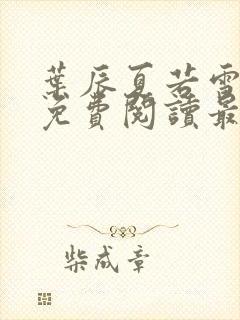 葉辰夏若雪
免費閱讀最
柴成章